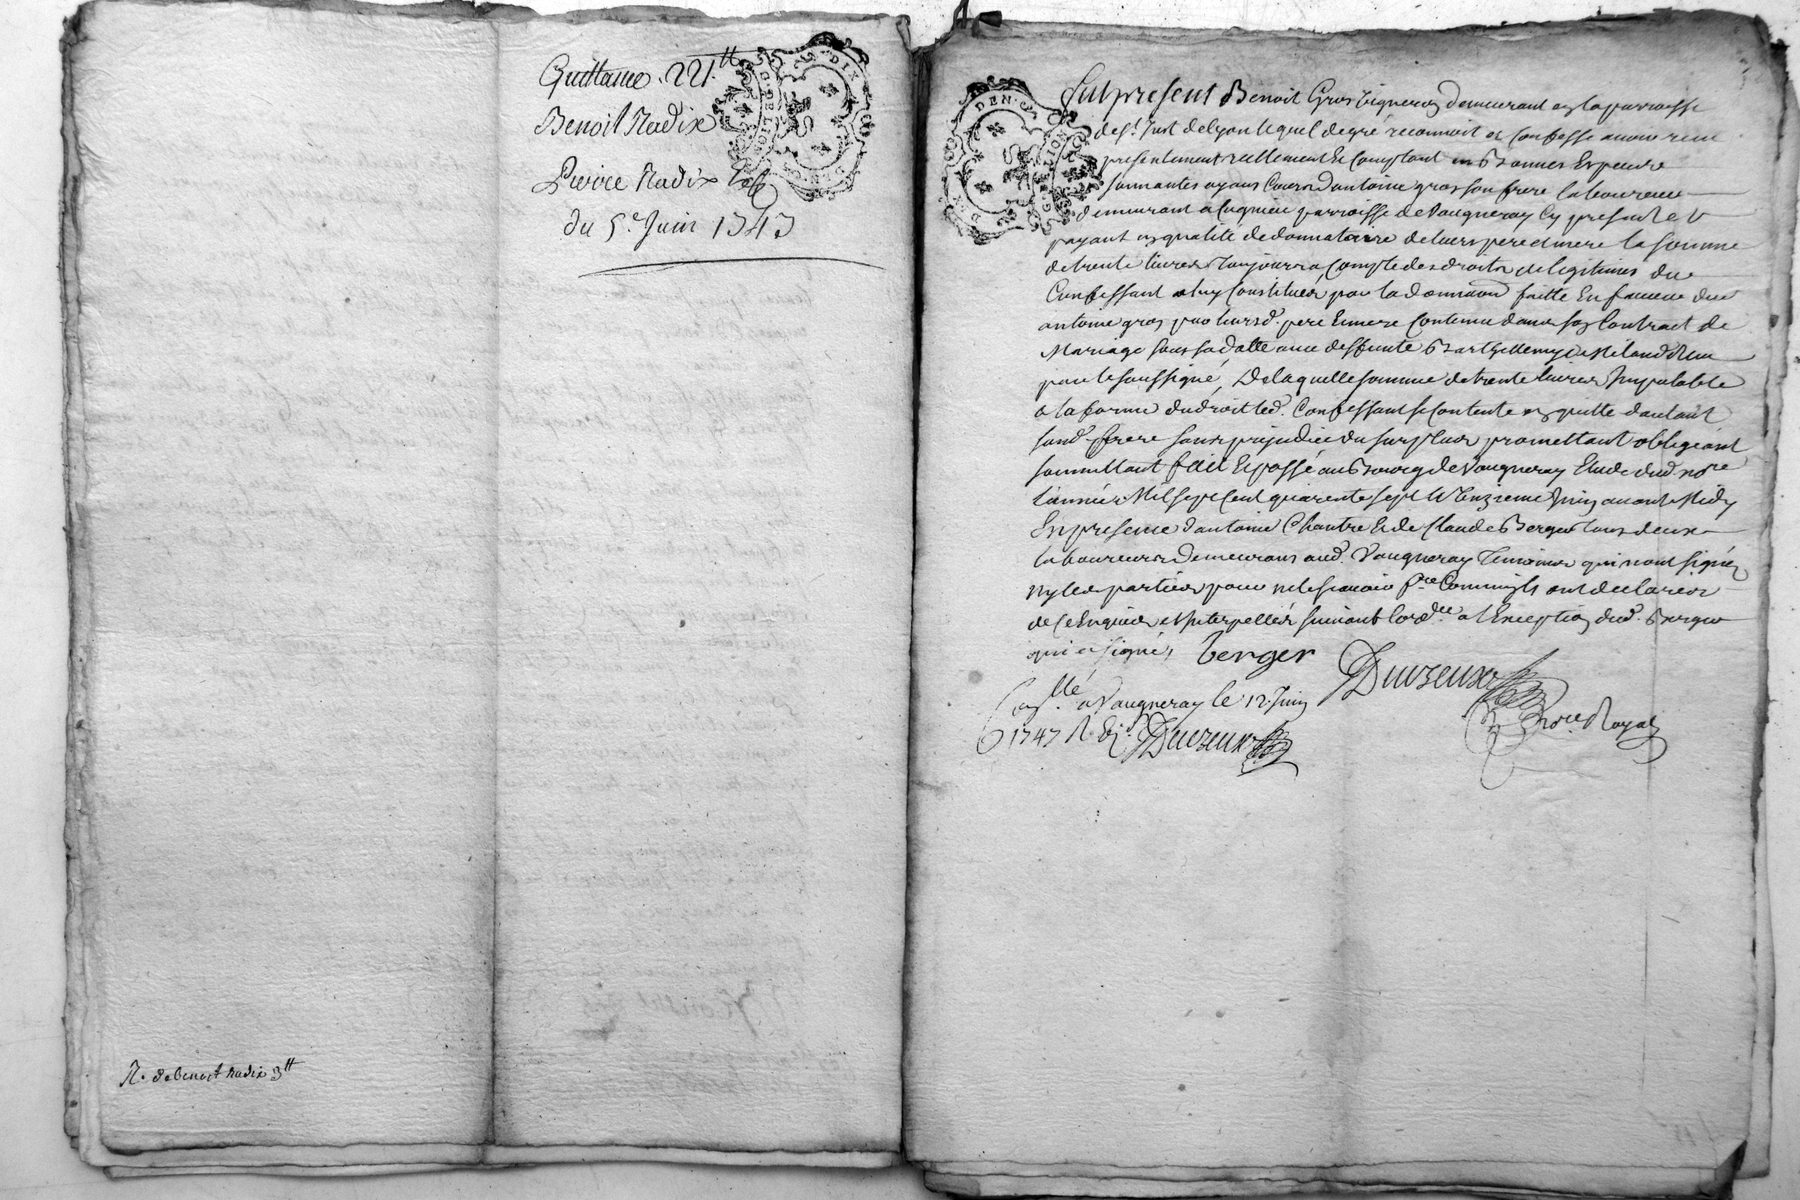 Quittance . 221.tt
Benoit Nadix
Pierre Nadix
du 5.e Juin 1747
R. de benoist nadix 3tt
Fut present Benoit Gros vigneron demeurant en la parroisse
de st. Just de lyon lequel de gré reconnoit et Confesse avoir receu
presentement reellement et Comptant en bonnes Especes
sonnantes ayans Cours d'antoine gros son frere laboureur
demeurant a parroisse de Vaugneray Cy present et
payant en qualité de donnataire de leurs pere et mere la somme
de trente livres a Compte des droits de legitimes du
Confessant a luy Constitués par la donnation faitte En faveur dud
antoine gros par leursd. pere Et mere Contenue dans son Contract de
Mariage sous sa datte avec deffunte Barthellemye receu
par le soussigné, De laquelle somme de trente livres Imputable
a la forme du droit led. Confessant se Contente en quitte d'autant
sond. frere sans prejudice du surplus promettant obligeant
soumettant fait Et passé au Bourg de Vaugneray Etude dud. nore
l'année Mil sept Cent quarente sept le onzieme Juin avant Midy
En presence d'antoine Chantre Et de Claude Berger tous deux
laboureurs demeurans aud. Vaugneray Temoins qui n'ont signés
ny les parties pour ne le scavoir Comm'ils ont declarés
de ce Enquis et Interpellés suivant l'ord.ce a l'Exception dud. Berger
qui a signé,
berger
Duzeux
nore Royal
Con.llé a Vaugneray le 12. Juin
1747 R. Duzeux